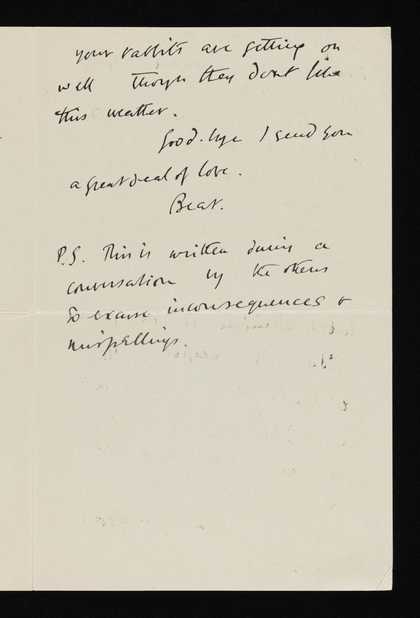 Your rabbits are getting on
well though they dont like
this weather.
Good-bye I send you
a great deal of love.
Bear.
P.S. This is written during a
conversation by the others
So excuse inconsequences &
misspellings.